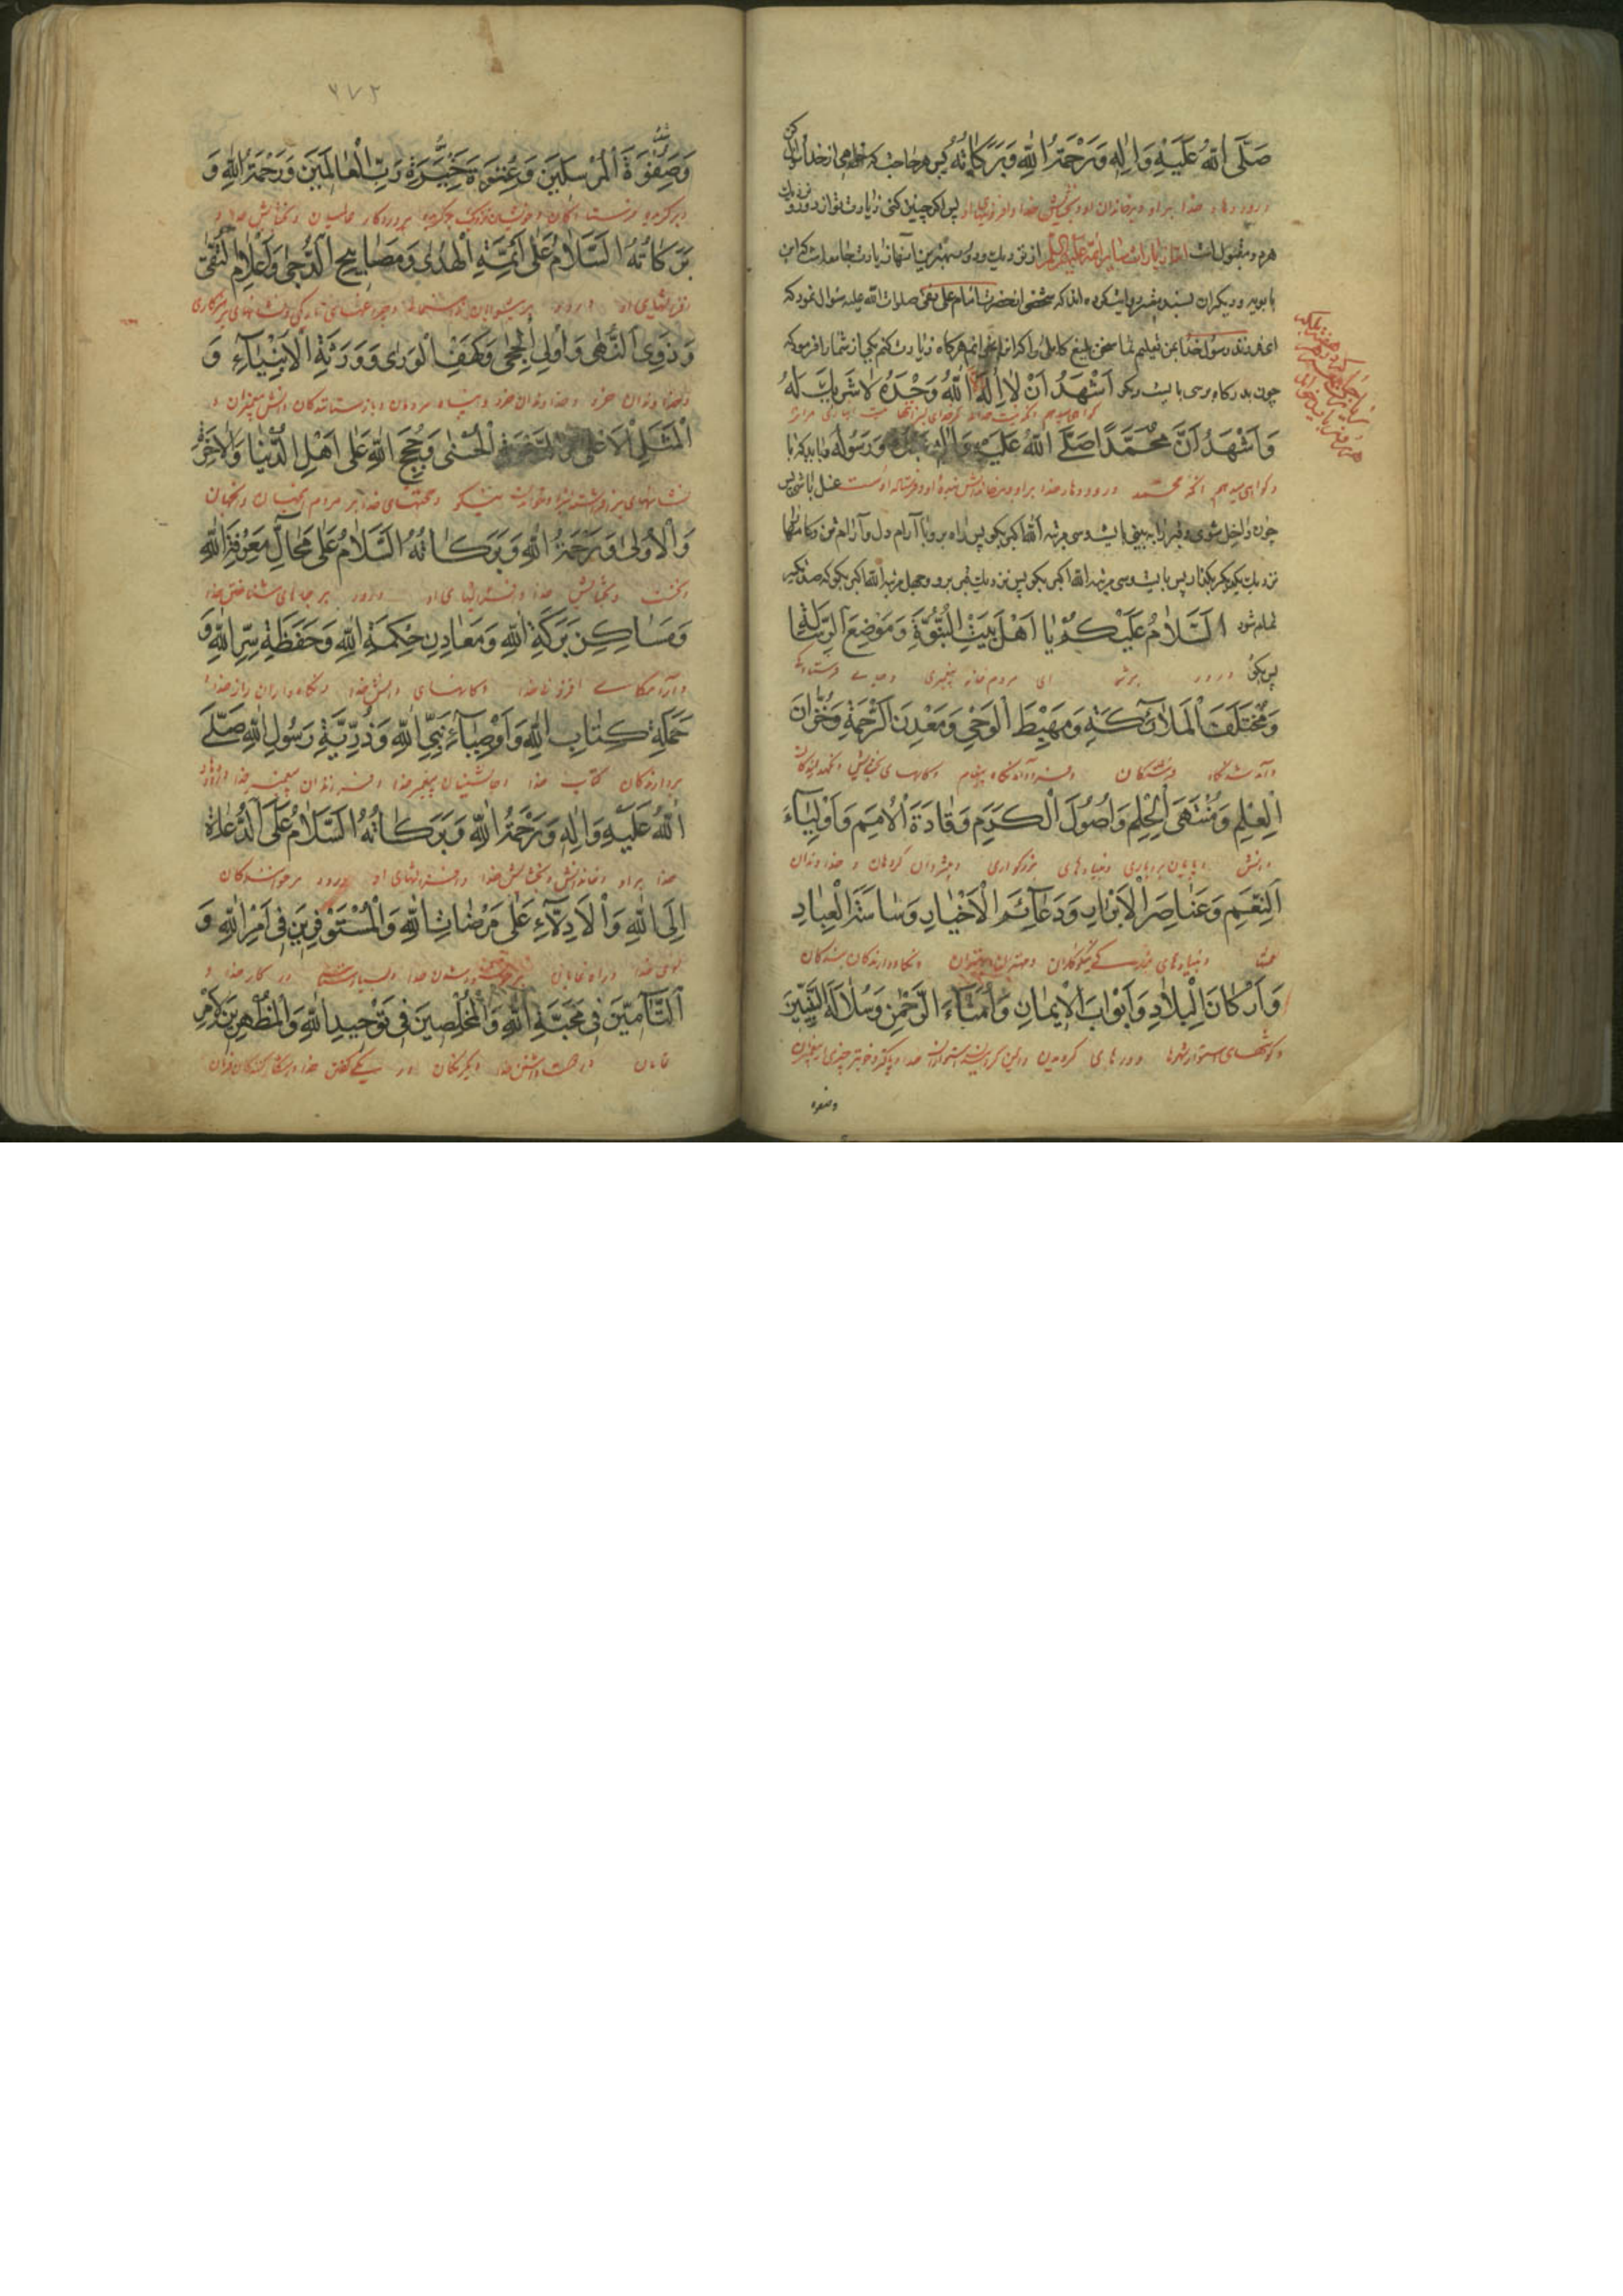 صَلَّی اللّهُ عَلَیْهِ وَاٰلِهِ وَرَحْمَةُ اللّٰهِ وَبَرَكَاتُهُ پس هر حاجت که خواهی از خدا طلب کن
درودهاء خدا بر او و بر خاندان او و بخشایش خدا و افزونیهای او پس اکر چنین کنی زیارت تو از دور و نزدیک
هر دو مقبول است اما زیارات سایر ائمه علیهم السلام از نزدیك و دور بهترین آنها زیارت جامعه است که ابن
بابویه و دیکران بسند معتبر روایت کرده اند که شخصی از حضرت امام علی نقی صلوات الله علیه سؤال نمود که
ای فرزند رسول خدا بمن تعلیم نما سخن بلیغ کاملی را که انرا بخوانم هرکاه زیارت کنم یکی از شما را فرمود که
چون بدرکاه رسی بایست و بکو اَشْهَدُ اَنْ لاٰ اِلٰهَ اِلَّا اللّٰهُ وَحْدَهُ لاٰ شَرِیكَ لَهُ
کواهی میدهم
وَاَشْهَدُ اَنَّ مُحَمَّدًا صَلَّی اللّٰهُ عَلَیْهِ وَاٰلِهِ عَبْدُهُ وَرَسُولُهُ و باید که با
وکواهی میدهم آنکه محمد درودهاء خدا بر او و بر خاندانش بنده او و فرستاده اوست غسل باشی پس
چون داخل شوی و قبر را به بینی بایست و سی مرتبه اللّٰه اکبر بکو پس راه برو با آرام دل و آرام تن و کامها
نزدیك یکدیکر بکذار پس بایست و سی مرتبه اللّٰه اکبر بکو پس نزدیك قبر برو و چهل مرتبه اللّٰه اکبر بکو که صد تکبیر
تمام شود اَلسَّلاٰمُ عَلَیْكُمْ یٰا اَهْلَ بَیْتِ النُّبُوَّةِ وَمَوْضِعَ الرِّسٰالَةِ
پس بکو درود بر شما ای مردم خانه پیغمبری و جای فرستادکی
وَمُخْتَلَفَ الْمَلاٰئِكَةِ وَمَهْبِطَ الْوَحْیِ وَمَعْدِنَ الرَّحْمَةِ وَخُزّٰانَ
و آمد شدگاه فرشتکان و فرودآمدنگاه پیغام و کانهای بخشایش
الْعِلْمِ وَمُنْتَهَی الْحِلْمِ وَاُصُولَ الْكَرَمِ وَقٰادَةَ الْاُمَمِ وَاَوْلِیٰآءَ
دانش و پایان بردباری و بنیادهای بزرکواری و پیشروان کروهان و خداوندان
النِّعَمِ وَعَنٰاصِرَ الْاَبْرٰارِ وَدَعٰآئِمَ الْاَخْیٰارِ وَسٰاسَةَ الْعِبٰادِ
نعمتها و بنیادهای نیکوکاران و ستونهای و نکاه دارندکان بندکان
وَاَرْكٰانَ الْبِلاٰدِ وَاَبْوٰابَ الْایمٰانِ وَاُمَنٰآءَ الرَّحْمٰنِ وَسُلاٰلَةَ النَّبِیّٖنَ
شهرها و درهای کرویدن
وصفوه
٦٧٢
وَصَفْوَةَ الْمُرْسَلینَ وَعِتْرَةَ خِیَرَةِ رَبِّ الْعٰالَمینَ وَرَحْمَةُ اللّٰهِ وَ
و برکزیده فرستادکان و خویشان نزدیک برکزیده پروردکار عالمیان و بخشایش خدا و
بَرَكٰاتُهُ اَلسَّلاٰمُ عَلٰی اَئِمَّةِ الْهُدٰی وَمَصٰابیحِ الدُّجٰی وَاَعْلاٰمِ التُّقٰی
افزونیهای او درود بر پیشوایان و چراغهای تاریکی و نشانهای پرهیزکاری
وَذَوِی النُّهٰی وَاُولِی الْحِجٰی وَكَهْفِ الْوَرٰی وَوَرَثَةِ الْاَنْبِیٰآءِ وَ
و خداوندان خرد و خداوندان خرد و پناه مردمان و بازماندکان دانش پیغمبران و
الْمَثَلِ الْاَعْلٰی وَالدَّعْوَةِ الْحُسْنٰی وَحُجَجِ اللّٰهِ عَلٰی اَهْلِ الدُّنْیٰا وَالْاٰخِرَةِ
و خواندن نیکو و حجتهای خدا بر مردم اینجهان و آنجهان
وَالْاُولٰی وَرَحْمَةُ اللّٰهِ وَبَرَكٰاتُهُ اَلسَّلاٰمُ عَلٰی مَحٰالِّ مَعْرِفَةِ اللّٰهِ
و نخست و بخشایش خدا و افزونیهای او درود بر جاهای شناختن خدا
وَمَسٰاكِنِ بَرَكَةِ اللّٰهِ وَمَعٰادِنِ حِكْمَةِ اللّٰهِ وَحَفَظَةِ سِرِّ اللّٰهِ وَ
و آرامکاه افزونی خدا و کانهای دانش خدا و نکاه داران راز خدا و
حَمَلَةِ كِتٰابِ اللّٰهِ وَاَوْصِیٰآءِ نَبِیِّ اللّٰهِ وَذُرِّیَّةِ رَسُولِ اللّٰهِ صَلَّی
بردارندکان کتاب خدا و جانشینان پیغمبر خدا و فرزندان پیغمبر خدا درود
اللّٰهُ عَلَیْهِ وَاٰلِهِ وَرَحْمَةُ اللّٰهِ وَبَرَكٰاتُهُ اَلسَّلاٰمُ عَلَی الدُّعٰاةِ
خدا بر او و خاندانش و بخشایش خدا و افزونیهای او درود بر خوانندکان
اِلَی اللّٰهِ وَالْاَدِلاّٰءِ عَلٰی مَرْضٰاتِ اللّٰهِ وَالْمُسْتَوْفِرینَ فی اَمْرِ اللّٰهِ وَ
بسوی خدا و راه نمایان خدا در کار خدا و
التّٰآمّینَ فی مَحَبَّةِ اللّٰهِ وَالْمُخْلِصینَ فی تَوْحیدِ اللّٰهِ وَالْمُظْهِرینَ لِاَمْرِ
تمامان در دوست داشتن خدا در یکی کفتن خدا و آشکار کنندکان فرمان